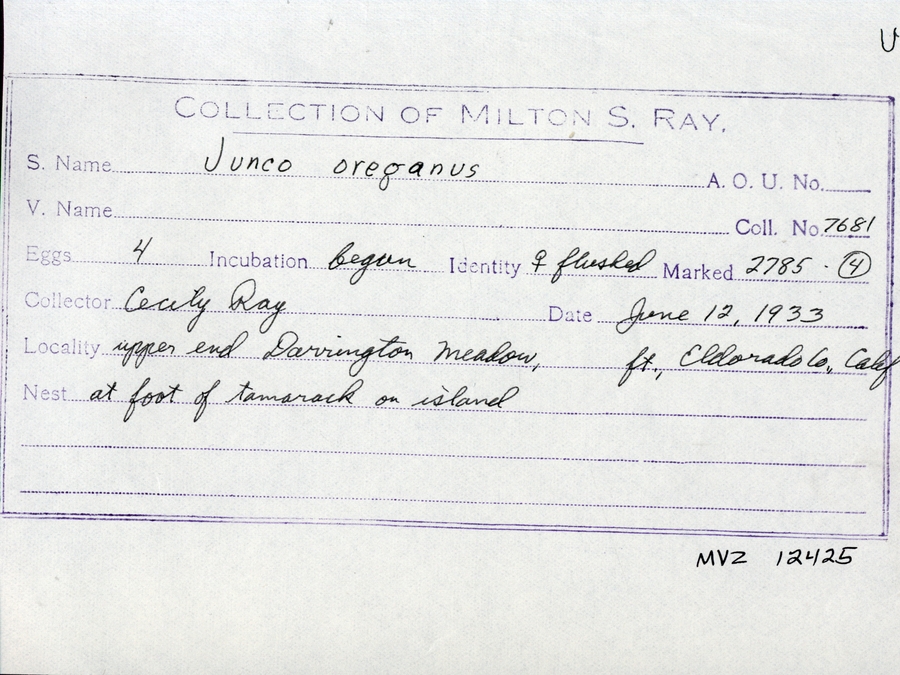 COLLECTION OF MILTON S. RAY.
S. Name Junco oreganus A. O. U. No.
V. Name Coll. No. 7681
Eggs 4 Incubation begun Identity ♀ flushed Marked 2785 · 4
Collector Cecily Ray Date June 12, 1933
Locality upper end Darrington Meadow, ft., Eldorado Co., Calif
Nest at foot of tamarack on island
MVZ 12425